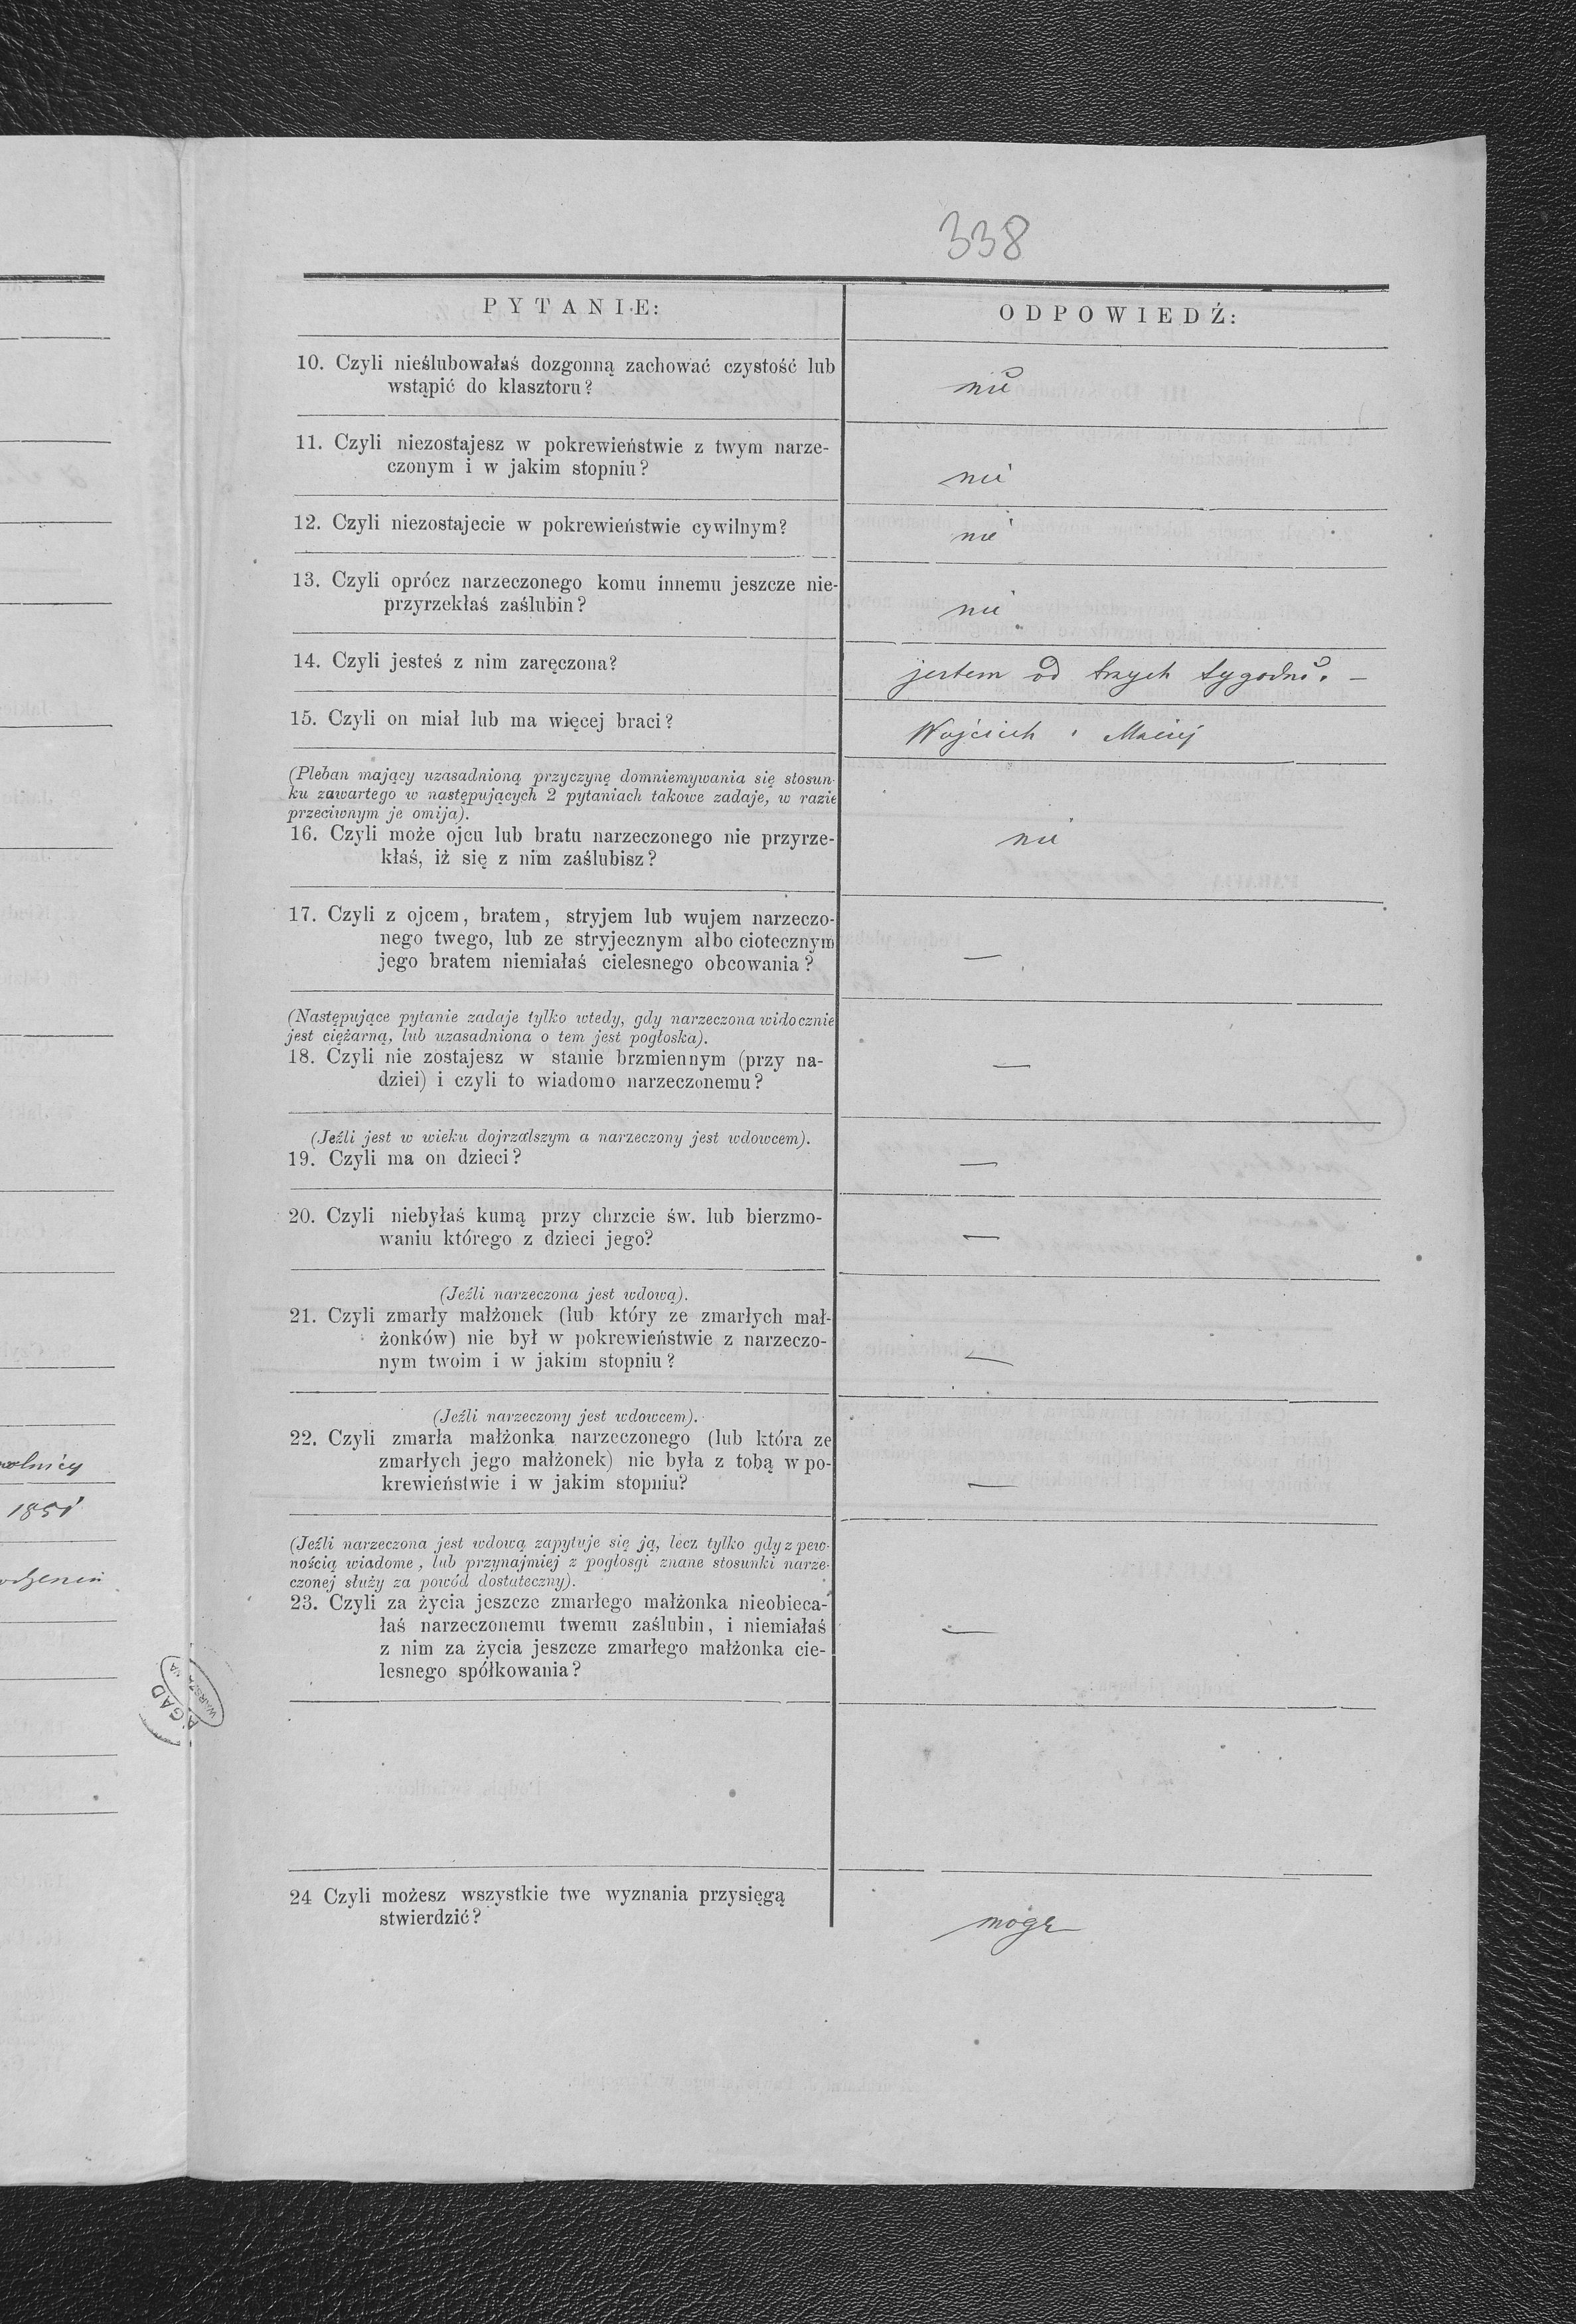 338
PYTANIE:
ODPOWIEDŹ:
10. Czyli nieślubowałaś dozgonną zachować czystość lub
wstąpić do klasztoru?
nie
11. Czyli niezostajesz w pokrewieństwie z twym narze-
czonym i w jakim stopniu?
nie
12. Czyli niezostajecie w pokrewieństwie cywilnym?
nie
13. Czyli oprócz narzeczonego komu innemu jeszcze nie-
przyrzekłaś zaślubin?
nie
14. Czyli jesteś z nim zaręczona?
jestem od trzech tygodni. —
15. Czyli on miał lub ma więcej braci?
Wojciech i Maciej
(Pleban mający uzasadnioną przyczynę domniemywania się stosun-
ku zawartego w następujących 2 pytaniach takowe zadaje, w razie
przeciwnym je omija).
16. Czyli może ojcu lub bratu narzeczonego nie przyrze-
kłaś, iż się z nim zaślubisz?
nie
17. Czyli z ojcem, bratem, stryjem lub wujem narzeczo-
nego twego, lub ze stryjecznym albo ciotecznym
jego bratem niemiałaś cielesnego obcowania?
—
(Następujące pytanie zadaje tylko wtedy, gdy narzeczona widocznie
jest ciężarną, lub uzasadniona o tem jest pogłoska).
18. Czyli nie zostajesz w stanie brzmiennym (przy na-
dziei) i czyli to wiadomo narzeczonemu?
—
(Jeźli jest w wieku dojrzalszym a narzeczony jest wdowcem).
19. Czyli ma on dzieci?
—
20. Czyli niebyłaś kumą przy chrzcie św. lub bierzmo-
waniu którego z dzieci jego?
—
(Jeźli narzeczona jest wdową).
21. Czyli zmarły małżonek (lub który ze zmarłych mał-
żonków) nie był w pokrewieństwie z narzeczo-
nym twoim i w jakim stopniu?
—
(Jeźli narzeczony jest wdowcem).
22. Czyli zmarła małżonka narzeczonego (lub która ze
zmarłych jego małżonek) nie była z tobą w po-
krewieństwie i w jakim stopniu?
—
(Jeźli narzeczona jest wdową zapytuje się ją, lecz tylko gdy z pew-
nością wiadome, lub przynajmiej z pogłosgi znane stosunki narze-
czonej służy za powód dostateczny).
23. Czyli za życia jeszcze zmarłego małżonka nieobieca-
łaś narzeczonemu twemu zaślubin, i niemiałaś
z nim za życia jeszcze zmarłego małżonka cie-
lesnego spółkowania?
—
24 Czyli możesz wszystkie twe wyznania przysięgą
stwierdzić?
mogę
1851
AGAD
WARSZAWA